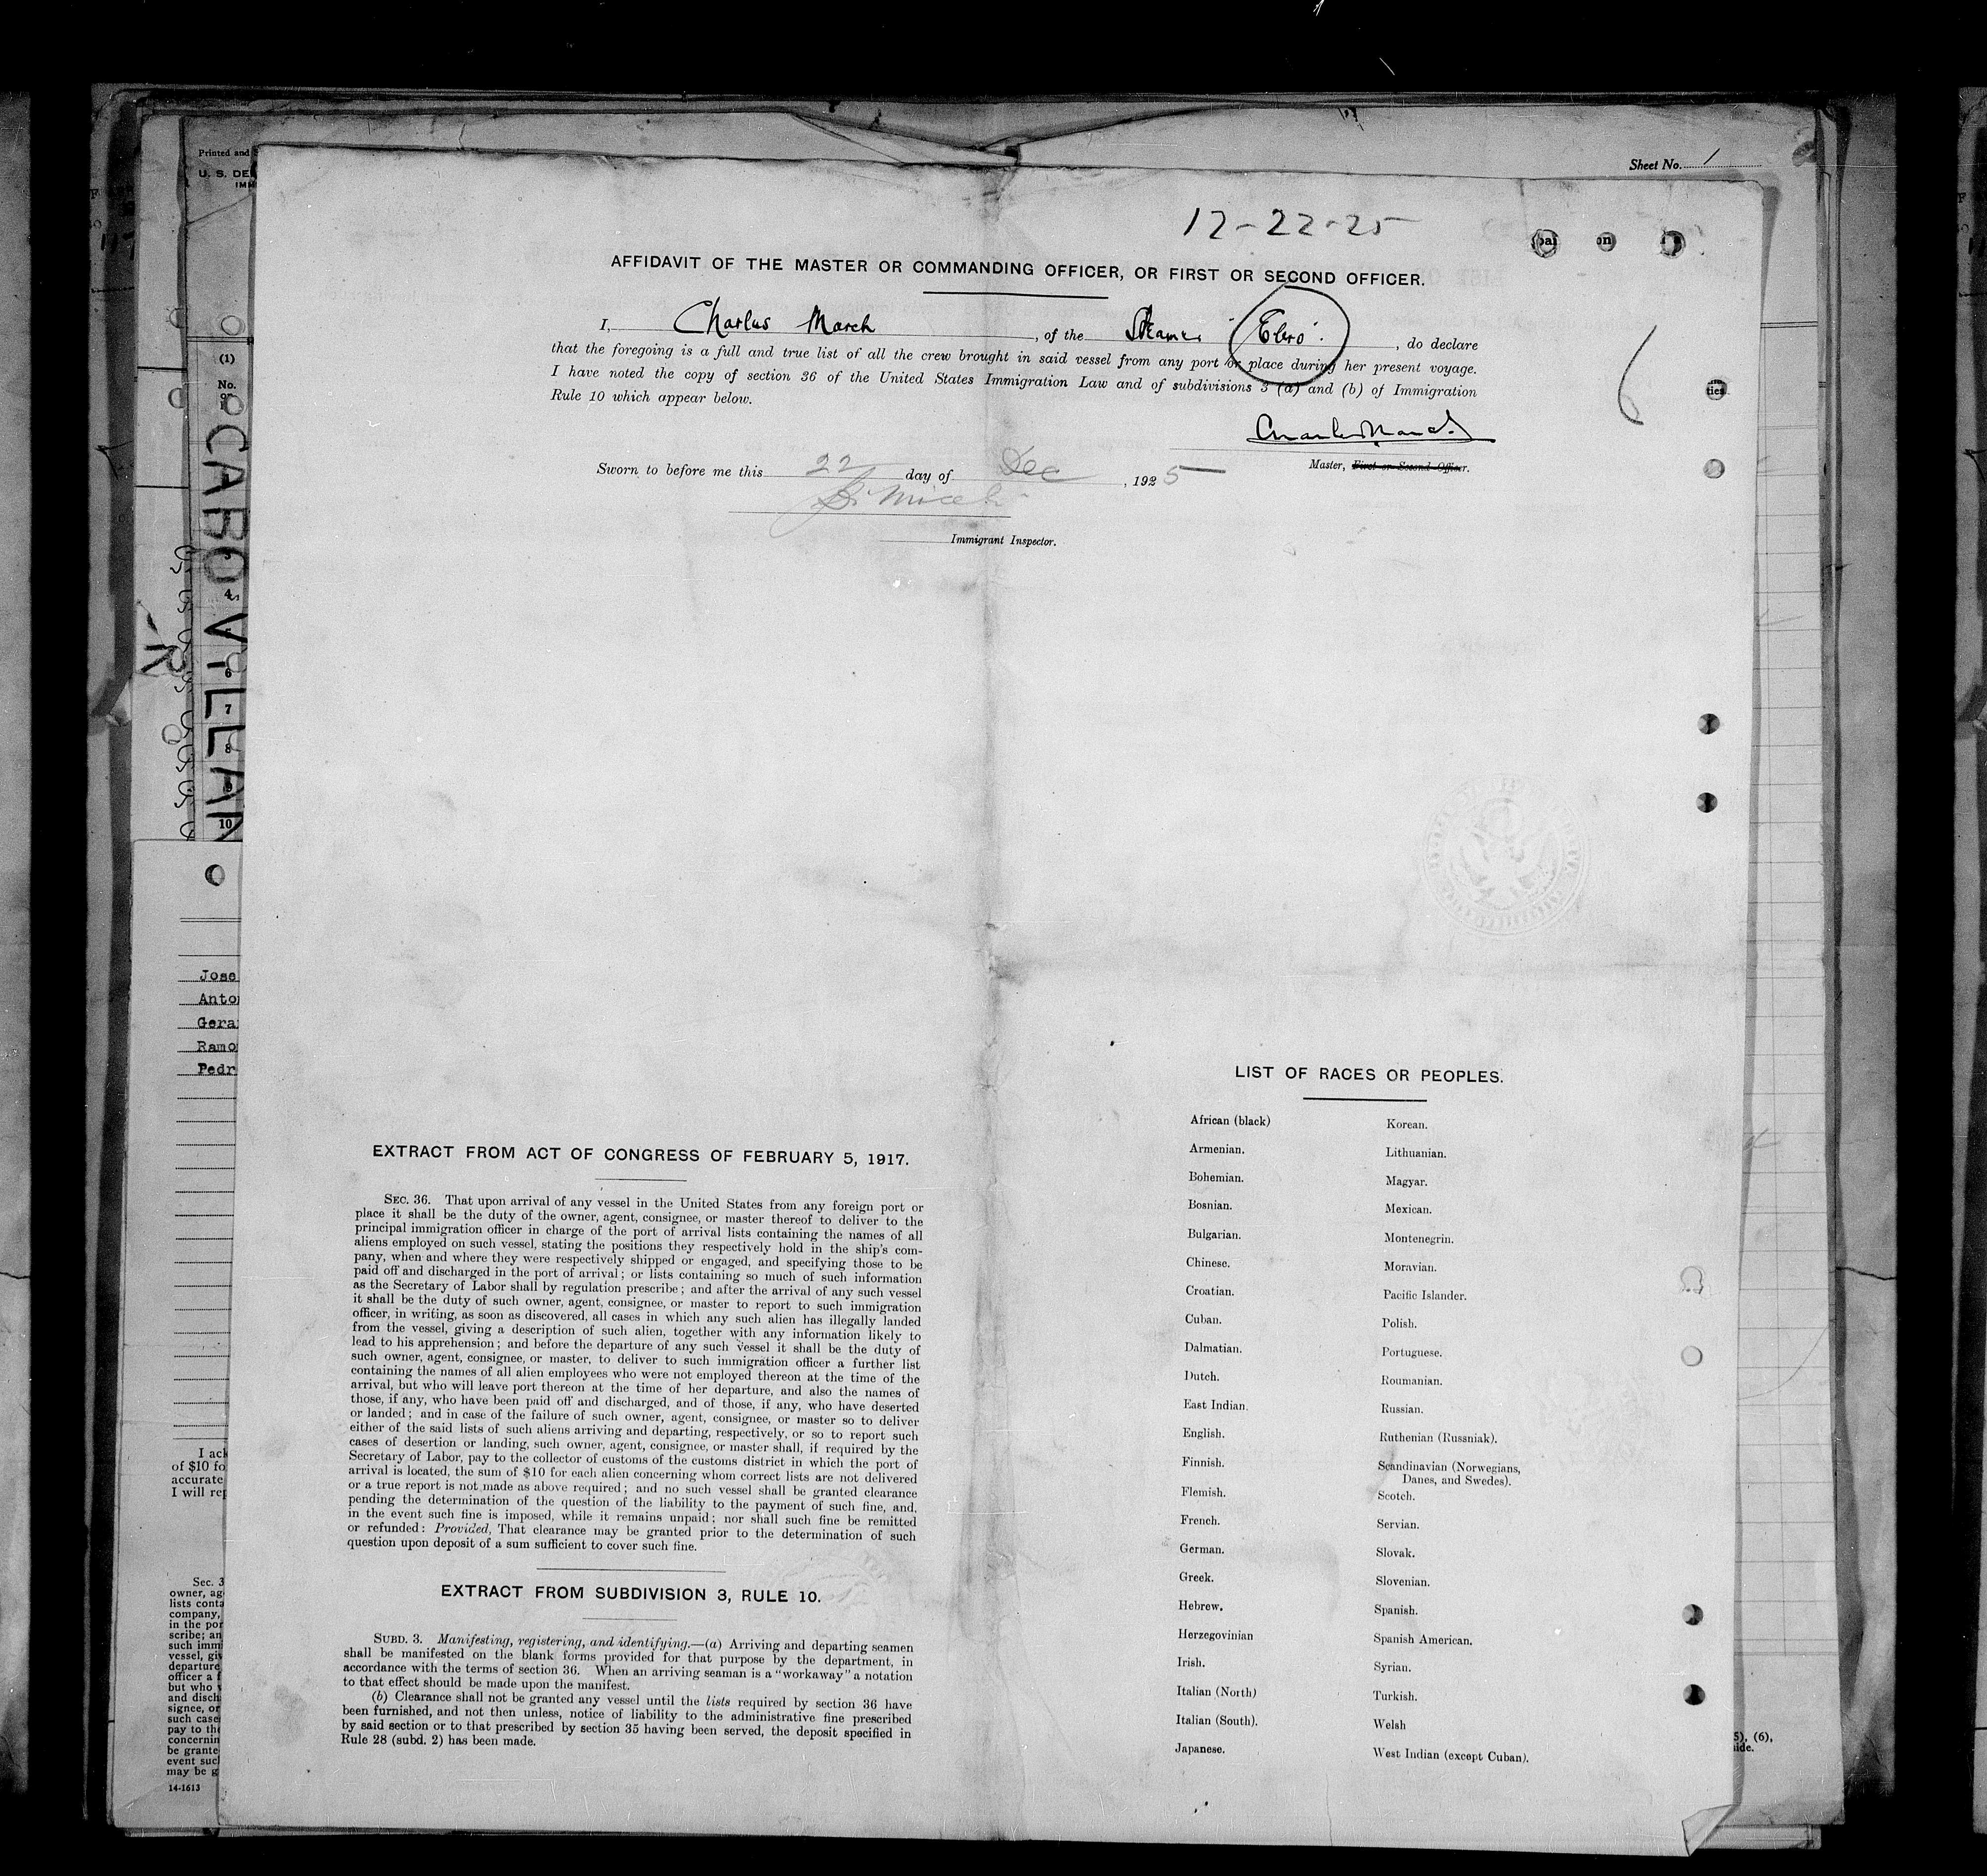 Printed and
U. S. DE
IMM
Sheet No. 1
12-22-25
AFFIDAVIT OF THE MASTER OR COMMANDING OFFICER, OR FIRST OR SECOND OFFICER.
I, Charles March, of the Steamer "Ebro", do declare
that the foregoing is a full and true list of all the crew brought in said vessel from any port or place during her present voyage.
I have noted the copy of section 36 of the United States Immigration Law and of subdivisions 3 (a) and (b) of Immigration
Rule 10 which appear below.
Charles March
Master, First or Second Officer.
Sworn to before me this 22 day of Dec, 1925
Immigrant Inspector.
(1)
No.
CABO VILLAN
4
6
7
8
9
10
Jose
Anto
Gera
Ramo
Pedr
I ack
of $10 fo
accurate
I will rep
Sec. 3
owner, ag
lists conta
company,
in the por
scribe; an
such imm
vessel, giv
departure
officer a f
but who
and disch
signee, or
such case
pay to the
concernin
be grante
event suc
may be g
14-1613
EXTRACT FROM ACT OF CONGRESS OF FEBRUARY 5, 1917.
SEC. 36. That upon arrival of any vessel in the United States from any foreign port or
place it shall be the duty of the owner, agent, consignee, or master thereof to deliver to the
principal immigration officer in charge of the port of arrival lists containing the names of all
aliens employed on such vessel, stating the positions they respectively hold in the ship's com-
pany, when and where they were respectively shipped or engaged, and specifying those to be
paid off and discharged in the port of arrival; or lists containing so much of such information
as the Secretary of Labor shall by regulation prescribe; and after the arrival of any such vessel
it shall be the duty of such owner, agent, consignee, or master to report to such immigration
officer, in writing, as soon as discovered, all cases in which any such alien has illegally landed
from the vessel, giving a description of such alien, together with any information likely to
lead to his apprehension; and before the departure of any such vessel it shall be the duty of
such owner, agent, consignee, or master, to deliver to such immigration officer a further list
containing the names of all alien employees who were not employed thereon at the time of the
arrival, but who will leave port thereon at the time of her departure, and also the names of
those, if any, who have been paid off and discharged, and of those, if any, who have deserted
or landed; and in case of the failure of such owner, agent, consignee, or master so to deliver
either of the said lists of such aliens arriving and departing, respectively, or so to report such
cases of desertion or landing, such owner, agent, consignee, or master shall, if required by the
Secretary of Labor, pay to the collector of customs of the customs district in which the port of
arrival is located, the sum of $10 for each alien concerning whom correct lists are not delivered
or a true report is not made as above required; and no such vessel shall be granted clearance
pending the determination of the question of the liability to the payment of such fine, and,
in the event such fine is imposed, while it remains unpaid; nor shall such fine be remitted
or refunded: Provided, That clearance may be granted prior to the determination of such
question upon deposit of a sum sufficient to cover such fine.
EXTRACT FROM SUBDIVISION 3, RULE 10.
SUBD. 3. Manifesting, registering, and identifying.—(a) Arriving and departing seamen
shall be manifested on the blank forms provided for that purpose by the department, in
accordance with the terms of section 36. When an arriving seaman is a "workaway" a notation
to that effect should be made upon the manifest.
(b) Clearance shall not be granted any vessel until the lists required by section 36 have
been furnished, and not then unless, notice of liability to the administrative fine prescribed
by said section or to that prescribed by section 35 having been served, the deposit specified in
Rule 28 (subd. 2) has been made.
LIST OF RACES OR PEOPLES.
African (black)
Armenian.
Bohemian.
Bosnian.
Bulgarian.
Chinese.
Croatian.
Cuban.
Dalmatian.
Dutch.
East Indian.
English.
Finnish.
Flemish.
French.
German.
Greek.
Hebrew.
Herzegovinian
Irish.
Italian (North)
Italian (South).
Japanese.
Korean.
Lithuanian.
Magyar.
Mexican.
Montenegrin.
Moravian.
Pacific Islander.
Polish.
Portuguese.
Roumanian.
Russian.
Ruthenian (Russniak).
Scandinavian (Norwegians,
Danes, and Swedes).
Scotch.
Servian.
Slovak.
Slovenian.
Spanish.
Spanish American.
Syrian.
Turkish.
Welsh
West Indian (except Cuban).
5), (6),
ide.